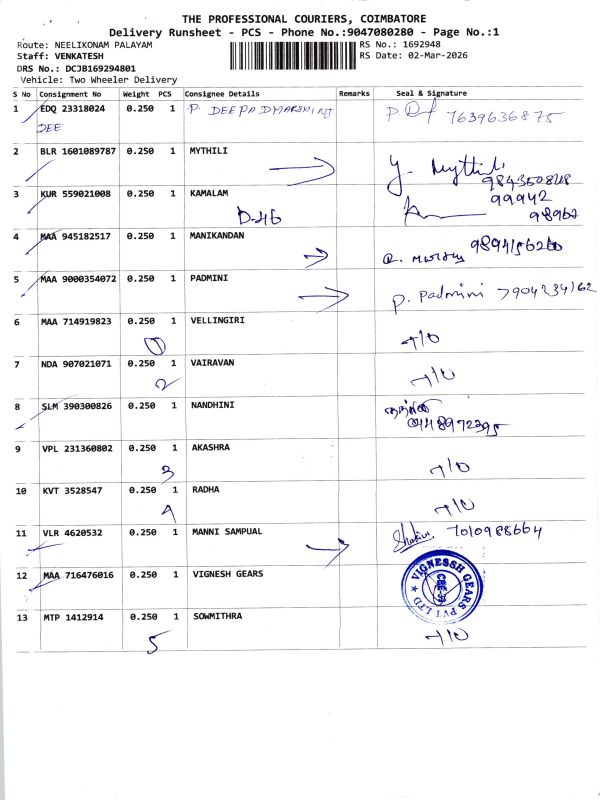 THE PROFESSIONAL COURIERS, COIMBATORE
Delivery Runsheet - PCS - Phone No.:9047080280 - Page No.:1
Route: NEELIKONAM PALAYAM
RS No.: 1692948
Staff: VENKATESH
RS Date: 02-Mar-2026
DRS No.: DCJB169294801
Vehicle: Two Wheeler Delivery
S No Consignment No Weight PCS Consignee Details Remarks Seal & Signature
1 EDQ 23318024 0.250 1 P. DEEPADHARSHINI 7639636875
DEE
2 BLR 1601089787 0.250 1 MYTHILI
y. Mythili
3 KUR 559021008 0.250 1 KAMALAM 99942
D-46
4 MAA 945182517 0.250 1 MANIKANDAN
5 MAA 9000354072 0.250 1 PADMINI
P. Padmini 7904234162
6 MAA 714919823 0.250 1 VELLINGIRI
1
7 NDA 907021071 0.250 1 VAIRAVAN
2
8 SLM 390300826 0.250 1 NANDHINI
9 VPL 231360802 0.250 1 AKASHRA
3
10 KVT 3528547 0.250 1 RADHA
4
11 VLR 4620532 0.250 1 MANNI SAMPUAL 7010988664
12 MAA 716476016 0.250 1 VIGNESH GEARS
VIGNESSH GEARS PVT LTD
13 MTP 1412914 0.250 1 SOWMITHRA
5